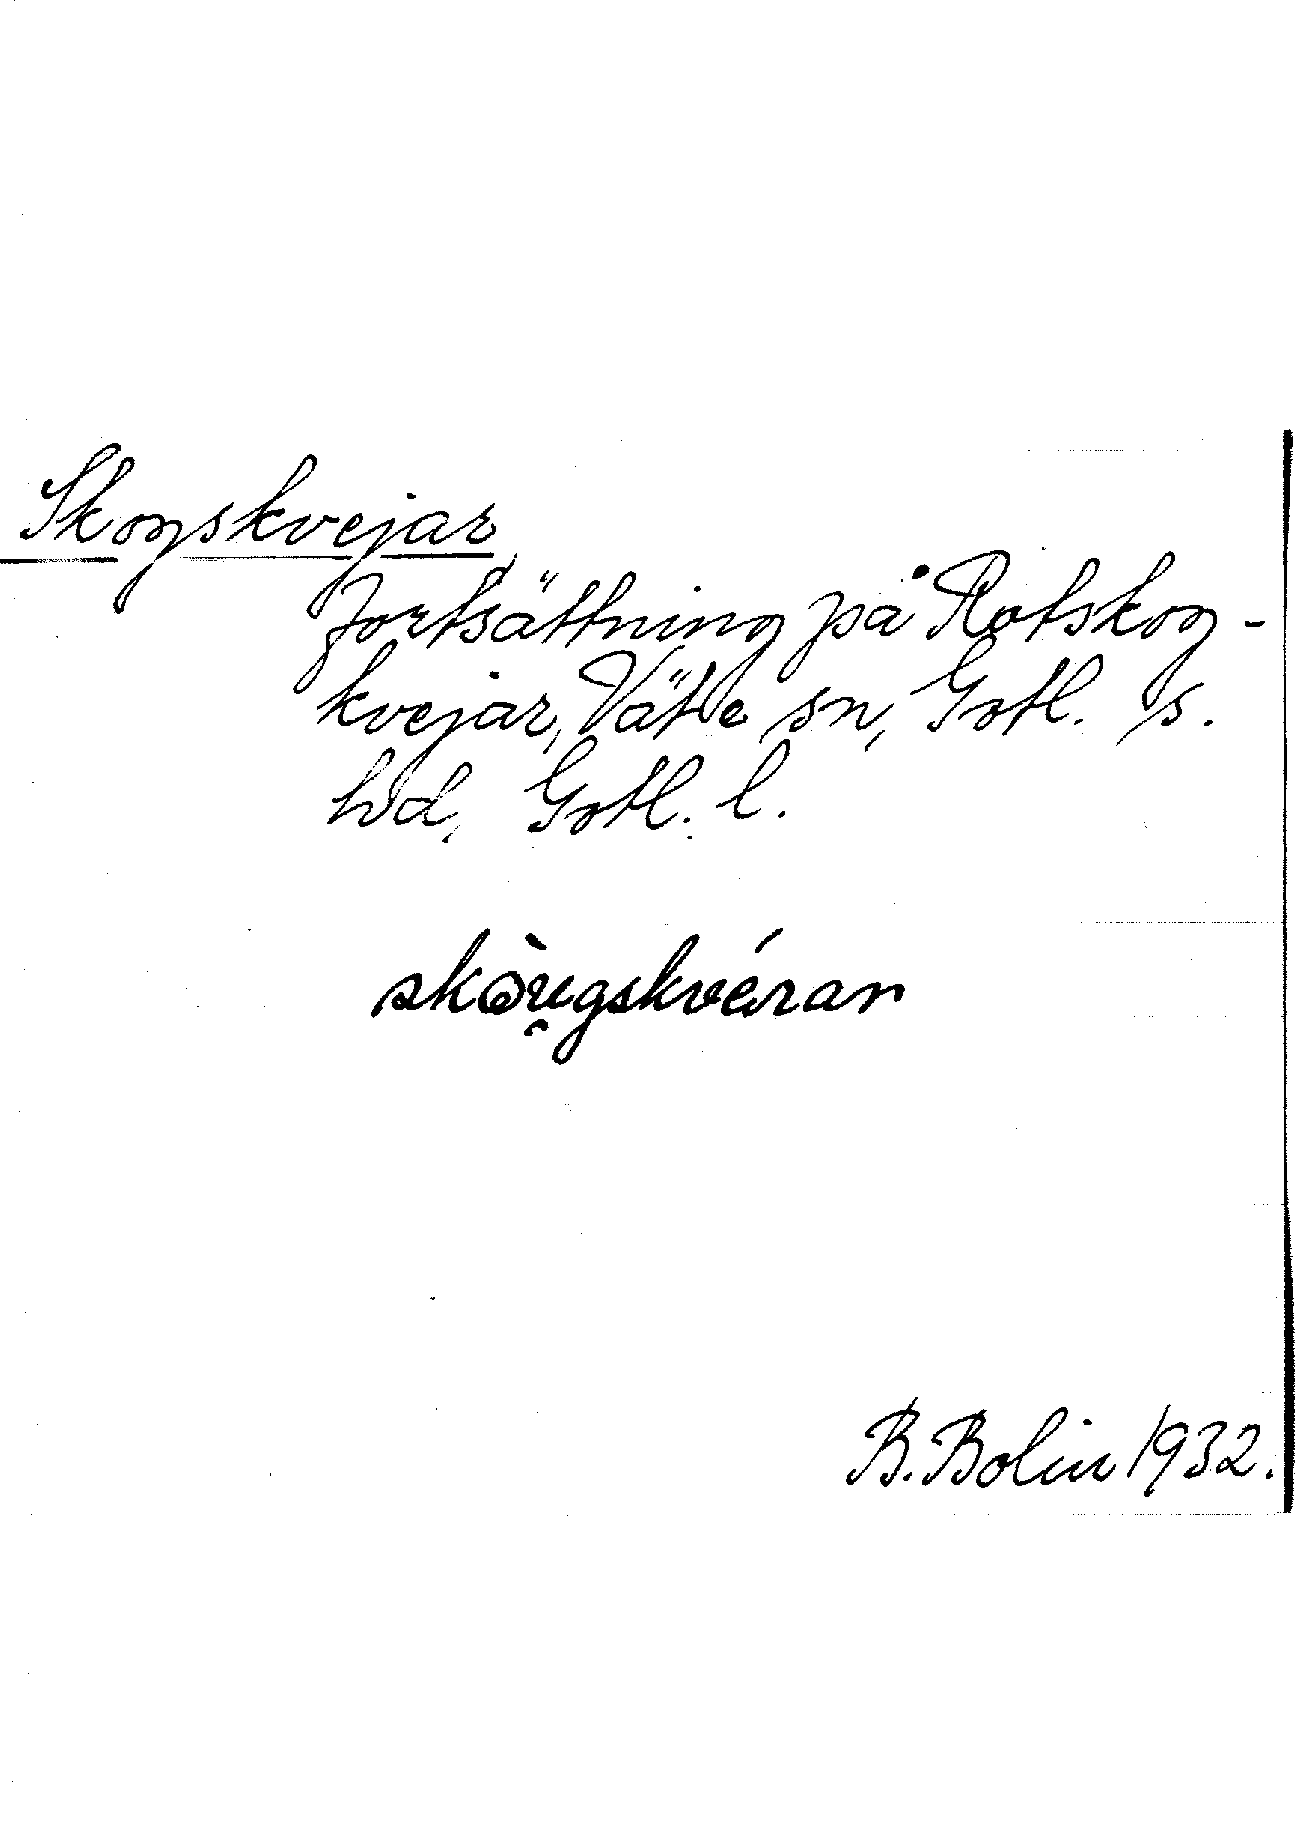 Skogskvejar,
fortsättning på Rotskog-
kvejar, Väte sn, Gotl. s.
hd, Gotl. l.
skòu̯gskvérar
B. Bolin 1932.